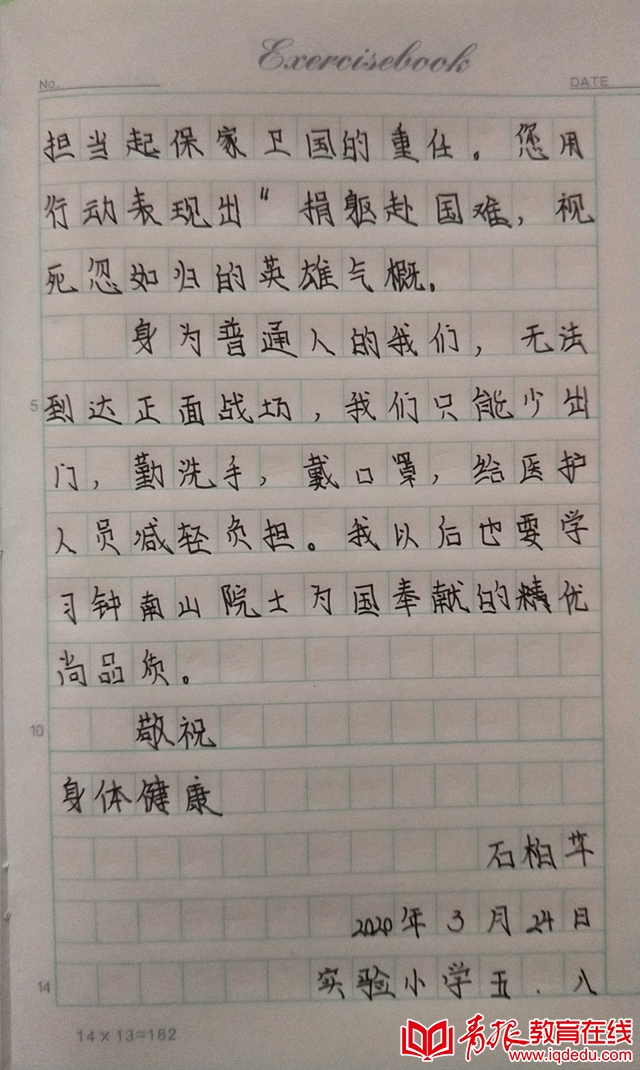 Exercisebook
No.
DATE
担当起保家卫国的重任。您用
行动表现出“捐躯赴国难，视
死忽如归的英雄气概。
身为普通人的我们，无法
5 到达正面战场，我们只能少出
门，勤洗手，戴口罩，给医护
人员减轻负担。我以后也要学
习钟南山院士为国奉献的精优
尚品质。
10 敬祝
身体健康
石柏芊
2020年3月24日
14 实验小学五.八
14×13=182
青报教育在线
www.iqdedu.com